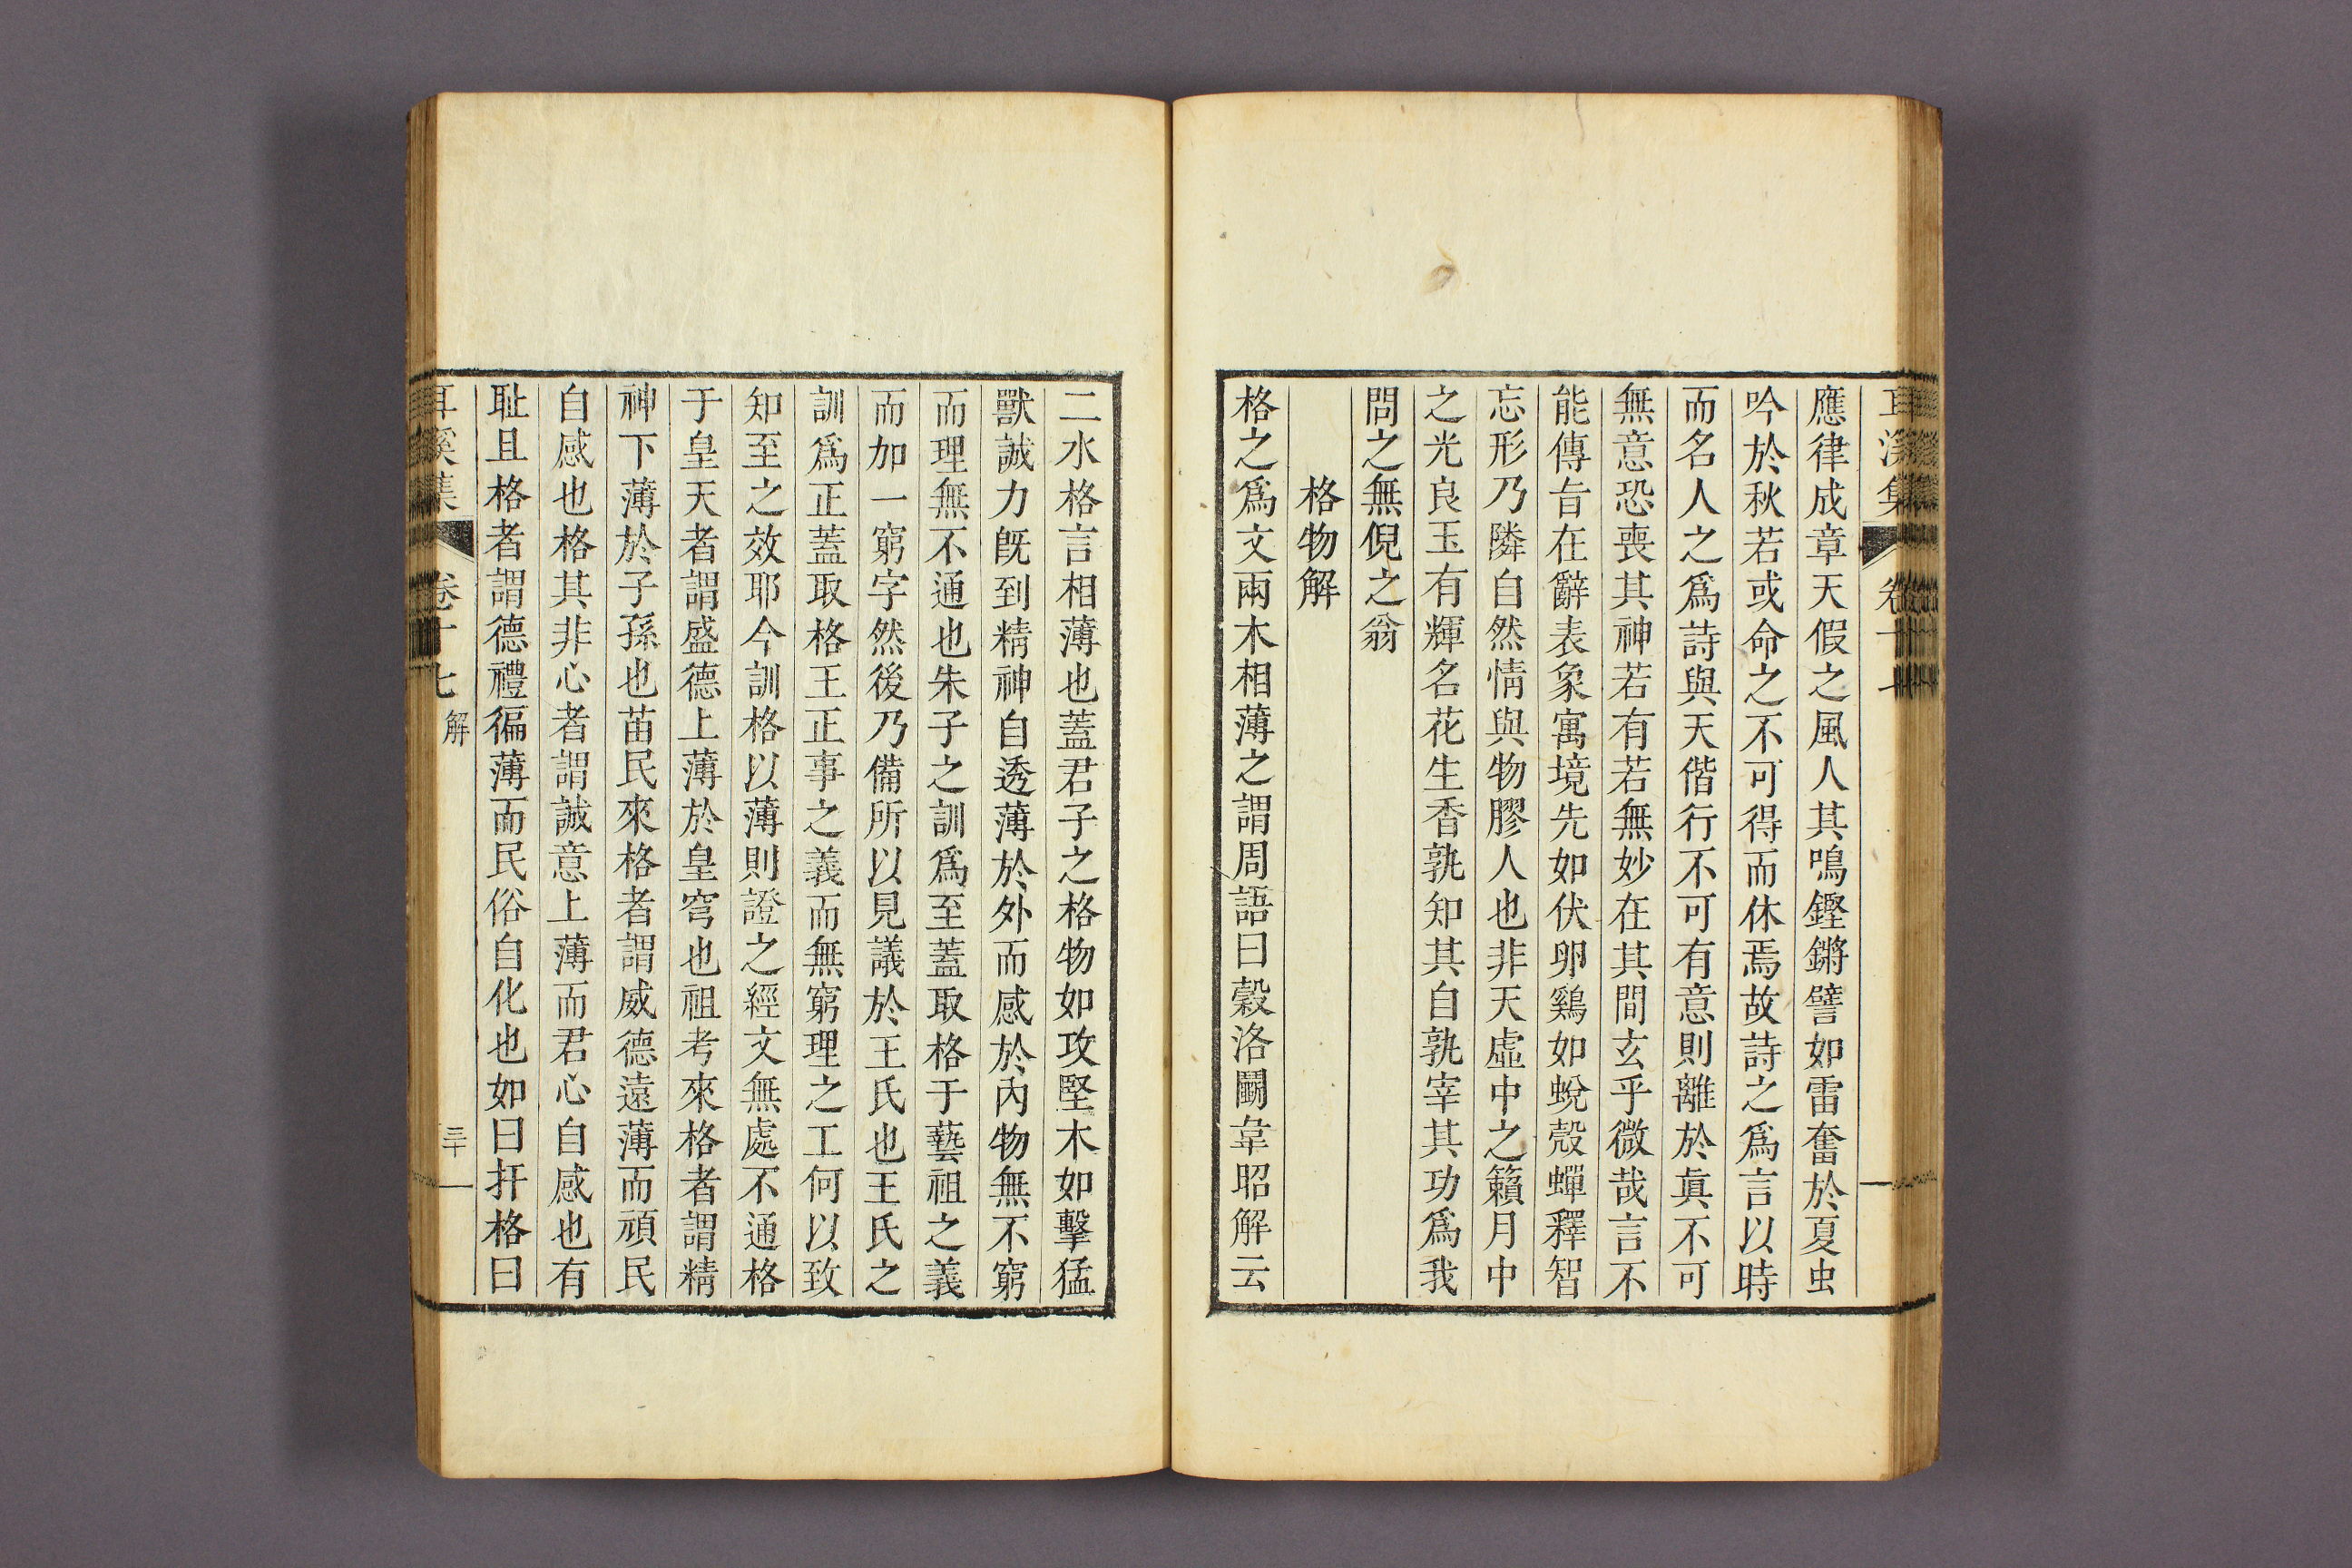 應律成章天假之風人其鳴鏗鏘譬如雷奮於夏虫
吟於秋若或命之不可得而休焉故詩之爲言以時
而名人之爲詩與天偕行不可有意則離於眞不可
無意恐喪其神若有若無妙在其間玄乎微哉言不
能傳旨在辭表象寓境先如伏卵鷄如蛻殼蟬釋智
忘形乃隣自然情與物膠人也非天虛中之籟月中
之光良玉有輝名花生香孰知其自孰宰其功爲我
問之無倪之翁
格物解
格之爲文兩木相薄之謂周語曰穀洛鬭韋昭解云
二水格言相薄也蓋君子之格物如攻堅木如擊猛
獸誠力旣到精神自透薄於外而感於內物無不窮
而理無不通也朱子之訓爲至蓋取格于藝祖之義
而加一窮字然後乃備所以見議於王氏也王氏之
訓爲正蓋取格王正事之義而無窮理之工何以致
知至之效耶今訓格以薄則證之經文無處不通格
于皇天者謂盛德上薄於皇穹也祖考來格者謂精
神下薄於子孫也苗民來格者謂威德遠薄而頑民
自感也格其非心者謂誠意上薄而君心自感也有
耻且格者謂德禮徧薄而民俗自化也如曰扞格曰
耳溪集 卷十七 解 三十